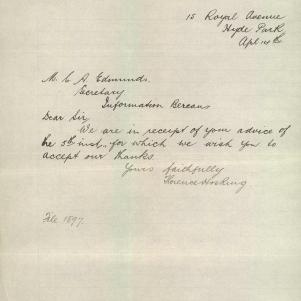 15 Royal Avenue
Hyde Park,
Apl 14th
M. C. A. Edmunds.
Secretary
Information Bereau
Dear Sir
We are in receipt of your advice of
the 5th inst, for which we wish you to
accept our thanks.
Yours faithfully
Florence Hosking
File 1897.